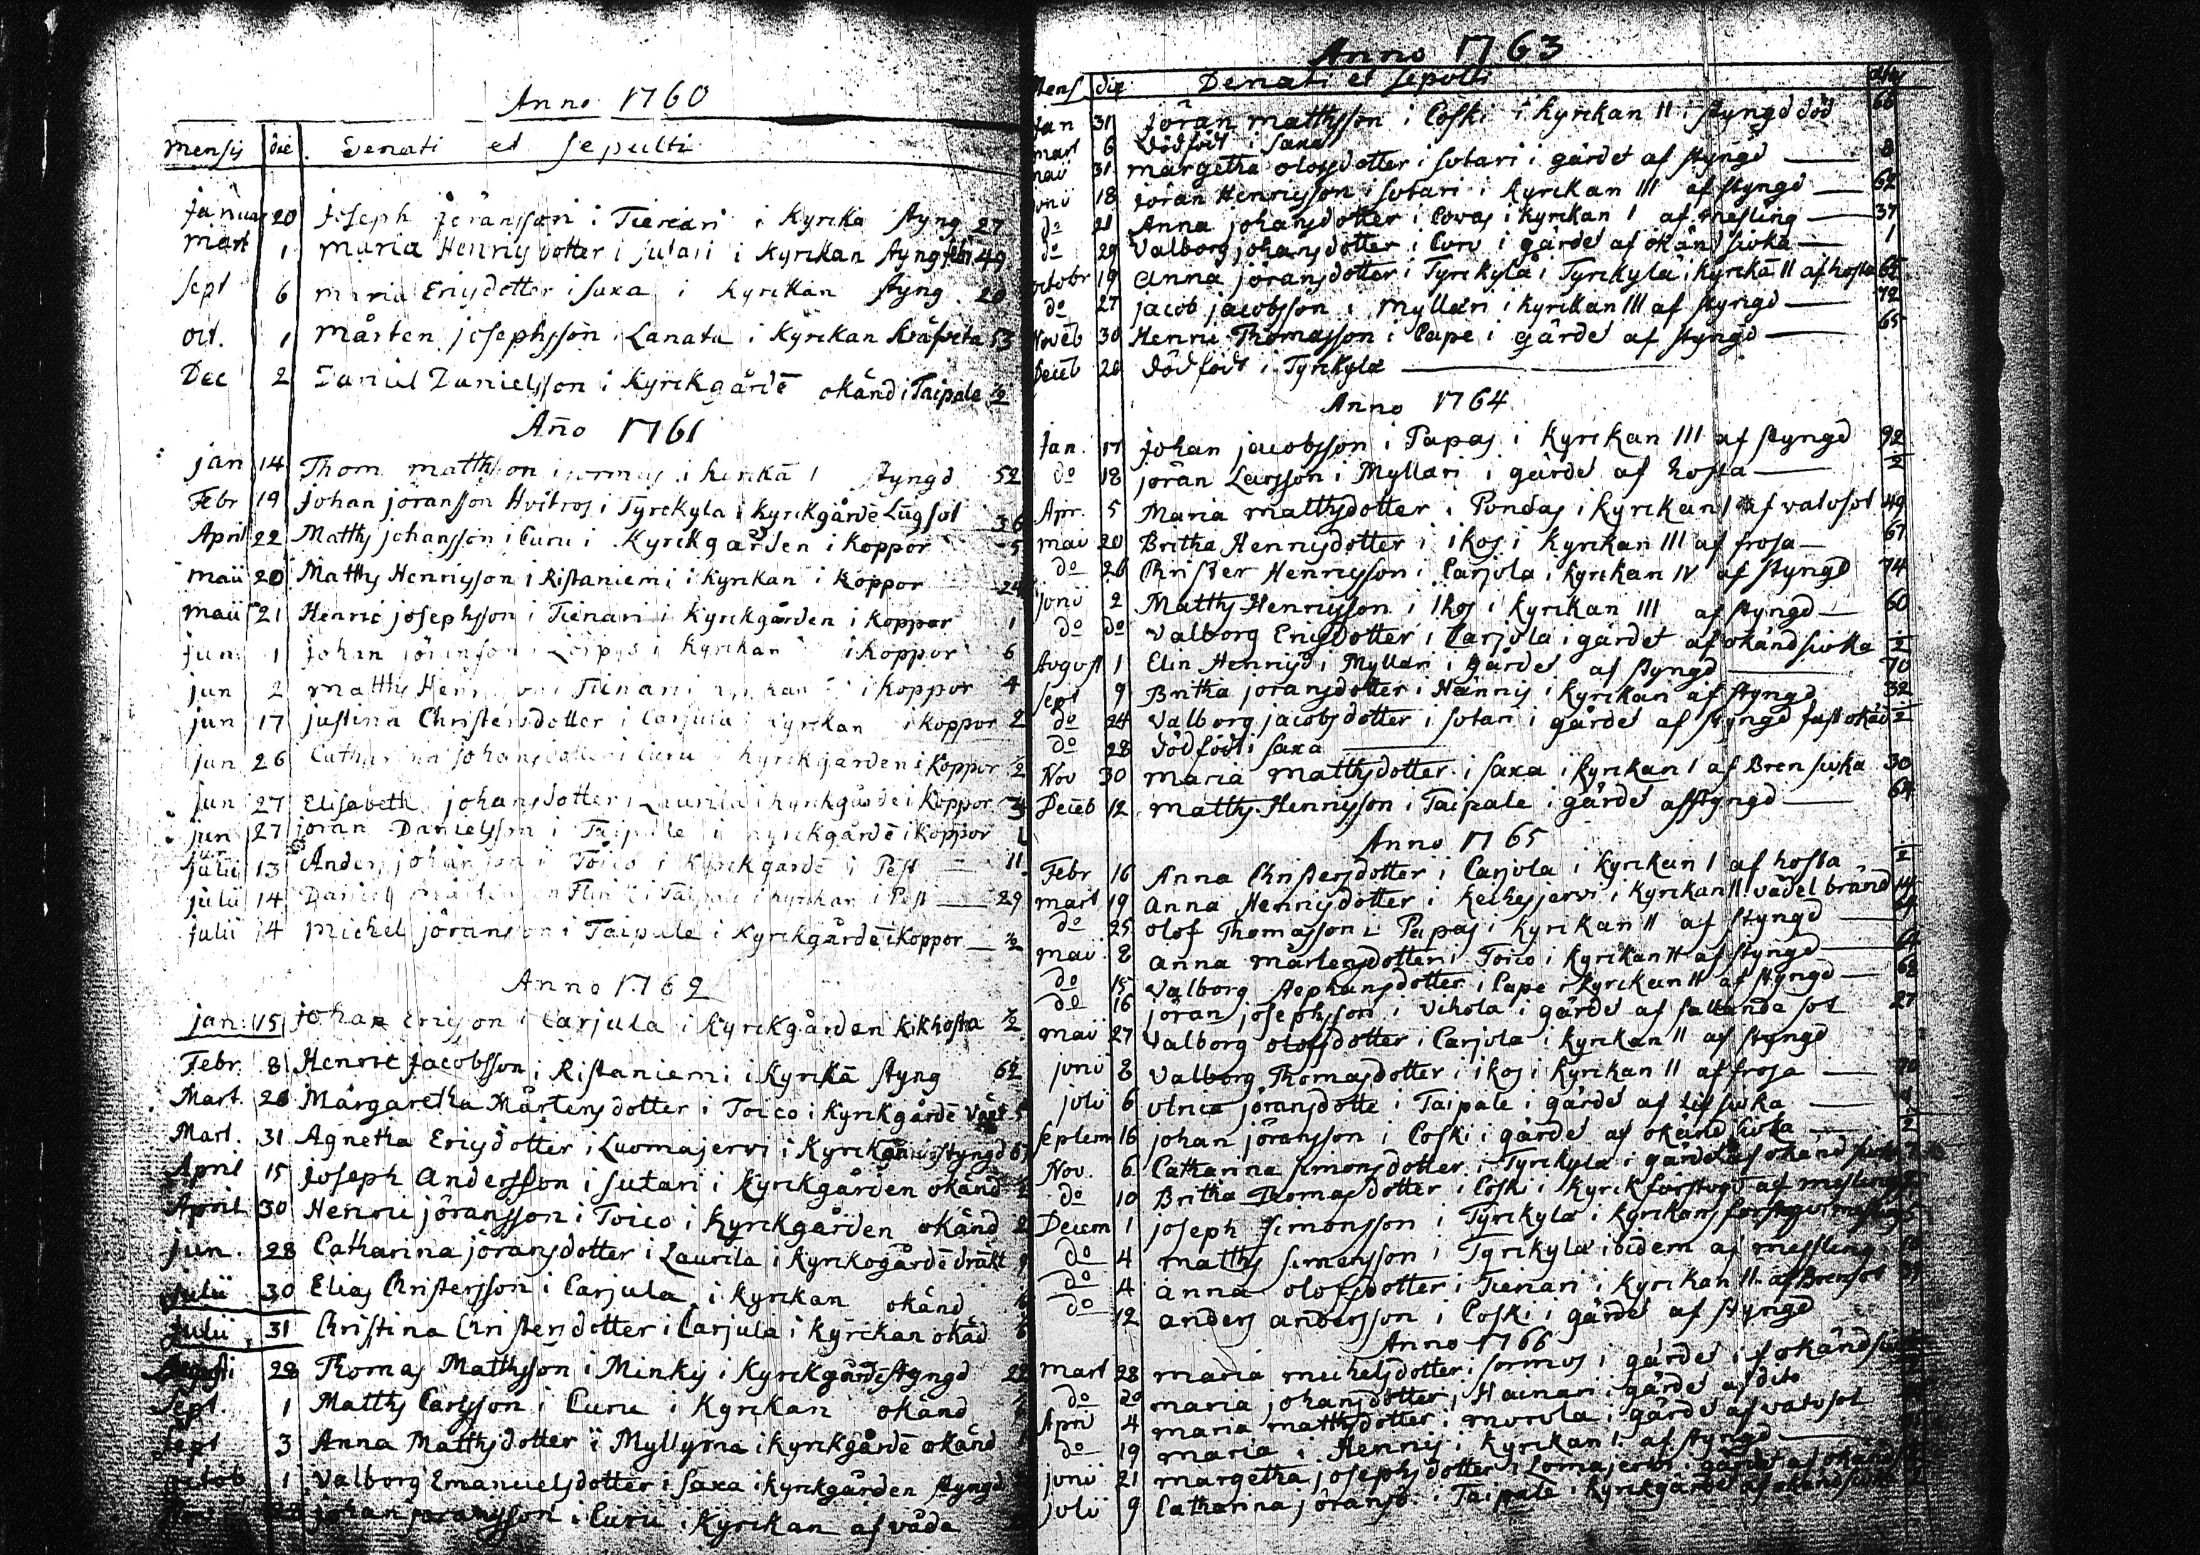 Anno 1760
Mensis die Denati et Sepulti
Januar 20 Joseph Jöransson i Tienari i Kyrka Styng 27
Mart 1 Maria Henrisdotter i Sutari i Kyrkan Styng 49
Sept 6 Maria Ericsdotter i Saxa i Kyrckan Styng 20
Oct. 1 Mårten Josephsson i Lanata i Kyrckan Kräfveta 53
Dec 2 Daniel Danielsson i Kyrckgårdē okänd i Taipale ½
Año 1761
Jan 14 Thom Matthsson i Styngd 52
Febr 19 Johan Jöransson Hvitros i Tyrckyla i Kyrckgårdē Lūgsot 36
April 22 Matths Johansson i Curu i Kyrckgården i Koppor 5
Maii 20 Matths Henricsson i Ristaniemi i Kyrckan i Koppor 24
Maii 21 Henric Josephsson i Tienari i Kyrckgården i Koppor 1
Jun: 1 Johan Jöransson i Kyrckan i Koppor 6
Jun 2 Matths i Tienari i Koppor 4
Jun 17 Justina Christersdotter i Carjula i Kyrckan i Koppor 2
Jun 26 Catharina Johansdotter i Curu i Kyrckgården i Koppor ½
Jun 27 Elisabeth Johansdotter i Laurila i Kyrckgårdē i Koppor
Jun 27 Jöran Danielsson i Taipale i Kyrckgårdē i Koppor
Julii 13 Anders Johansson i Toico i Kyrckgårdē i Pest 11
Julii 14 Daniel i Taipale i Kyrckan i Pest 29
Julii 14 Michel Jöransson i Taipale i Kyrckgårdē i Koppor ½
Anno 1762
Jan: 15 Johan Ericsson i Carjula i Kyrckgården Kikhosta ½
Febr. 8 Henric Jacobsson i Ristaniemi i Kyrckā Styng 62
Mart. 28 Margaretha Mårtensdotter i Toico i Kyrckgårdē
Mart. 31 Agnetha Ericsdotter i Luomajervi i Styngd
April 15 Joseph Andersson i Sutari i Kyrckgården okänd
April 30 Henric Jöransson i Toico i Kyrckgården okänd 2
Jun. 28 Catharina Jöransdotter i Laurila i Kyrckogårdē
Julii 30 Elias Christersson i Carjula i Kyrckan okänd
Julii 31 Christina Christersdotter i Carjula i Kyrckan okäd
28 Thomas Matthsson i Minkis i Kyrckgårdē Styngd
Sept. 1 Matths Carlsson i Curu i Kyrckan okänd
Sept 3 Anna Matthsdotter i Myllyma i Kyrckgårdē okänd
Octob 1 Valborg Emanuelsdotter i Saxa i Kyrckgården Styngd
Johan Jöransson i Curu i Kyrckan af våda
Anno 1763
Mens die Denati et Sepulti
Jan 31 Jöran Matthsson i Coski i Kyrckan II i Styngd död 66
Mart 6 Dödfödt i Saxa
Maii 31 Margetha Olofsdotter i Sutari i gårdet af Styngd 8
Junii 18 Jöran Henricsson i Sutari i Kyrckan III af Styngd 62
do 21 Anna Johansdotter i Covas i Kyrckan I af mesling 37
do 29 Valborg Johansdotter i Curu i gårdet af okänd siuka 1
Octobr 19 Anna Jöransdotter i Tyrckylä i Kyrckā II af hosta
do 27 Jacob Jacobsson i Myllari i Kyrckan III af Styngd 72
Novēb 30 Henric Thomasson i Pape i gårdet af Styngd 65
Decēb 20 Dödfödt i Tyrckyla
Anno 1764
Jan. 17 Johan Jacobsson i Papas i Kyrckan III af Styngd 92
do 18 Jöran Larsson i Myllari i gårdet af hosta ½
Apr. 5 Maria Matthsdotter i Pundas i Kyrckan I af vatusot 49
Maii 20 Britha Henricsdotter i Ikos i Kyrckan III af frosa 67
do 26 Christer Henricsson i Carjula i Kyrckan IV af Styngd 74
Junii 2 Matths Henricsson i Ikos i Kyrckan III af Styngd 60
do do Valborg Ericsdotter i Carjula i gårdet af okänd siuka ½
August 1 Elin Henricsd i Myllari i gårdet af Styngd 70
Sept 9 Britha Jöransdotter i Hännis i Kyrckan af Styngd 32
do 24 Valborg Jacobsdotter i Sutari i gårdet af Styngd fast okäd ½
do 28 Dödfödt i Saxa
Nov 30 Maria Matthsdotter i Saxa i Kyrckan I af Bren siuka 30
Decēb 12 Matths Henricsson i Taipale i gårdet af Styngd 64
Anno 1765
Febr 16 Anna Christersdotter i Carjula i Kyrckan I af hosta ½
Mart 19 Anna Henricsdotter i Keihesjervi i Kyrckan II vådel bränd
do 25 Olof Thomasson i Papas i Kyrckan II af Styngd
Maii 8 Anna Mårtensdotter i Toico i Kyrckan II af Styngd
do 15 Valborg Stephansdotter i Pape i Kyrckan II af Styngd
do 16 Jöran Josephsson i Vihola i gårdet af fallande sot 27
Maii 27 Valborg Olofsdotter i Carjula i Kyrckan II af Styngd
Junii 8 Valborg Thomasdotter i Ikos i Kyrckan II af frosa 70
Julii 6 Ulrica Jöransdotte i Taipale i gårdet af
Septem 16 Johan Jöransson i Coski i gårdet af okänd siuka ½
Nov. 6 Catharina Simonsdotter i Tyrckyla i gårdet af okänd
do 10 Britha Thomasdotter i Coski i Kyrck forstugu af mesling
Decem 1 Joseph Simonsson i Tyrckyla i Kyrckans
do 4 Matths Simonsson i Tyrckyla ibidem af messling
do 4 Anna Olofsdotter i Tienari i Kyrckan II af Brensot
do 12 Anders Andersson i Coski i gårdet af Styngd
Anno 1766
Mart 28 Maria Michelsdotter i Sormus i gårdet af okänd
do 20 Maria Johansdotter i Hainari i gårdet af dito
April 4 Maria Matthsdotter i Murula i gårdet af vatusot
do 19 Maria i Hennis i Kyrckan I af Styngd
Junii 21 Margetha Josephsdotter i Lomajervi i gårdet af okänd
Julii 9 Catharina Jöransd i Taipale i Kyrckgårdet af okänd